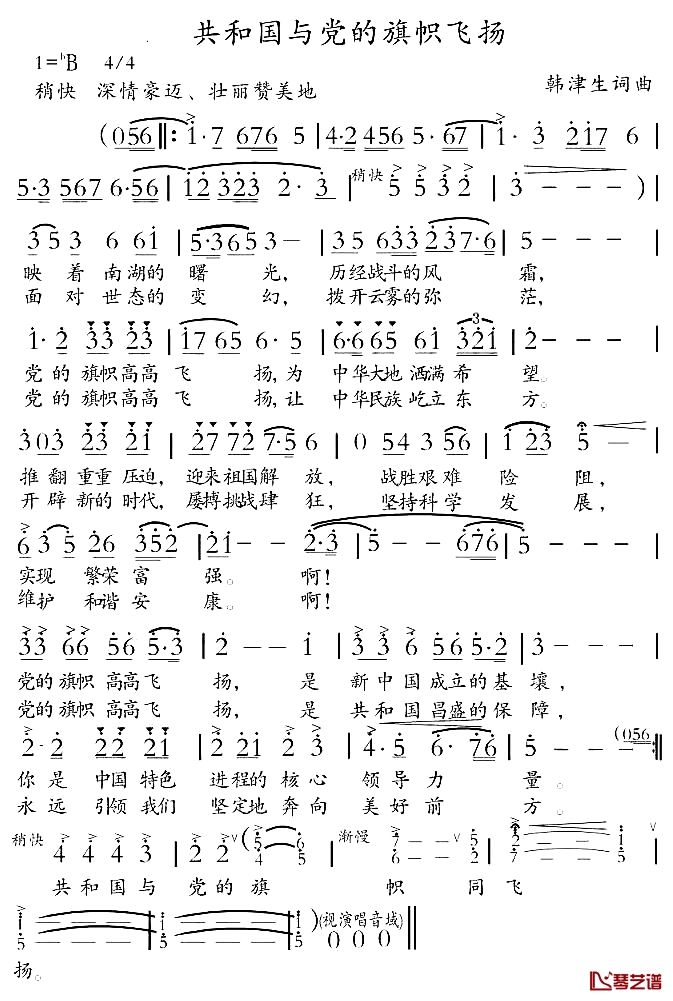 共和国与党的旗帜飞扬
1=♭B 4/4
稍快 深情豪迈、壮丽赞美地
韩津生词曲
(056 ‖: 1·7 676 5 | 4·2 456 5·67 | 1·3 217 6
5·3 567 6·56 | 12 323 2·3 | 稍快 5 5 3 2 | 3 - - - ) |
3 5 3 6 61 | 5·365 3 - | 35 633 237·6 | 5 - - - |
映着南湖的曙光，历经战斗的风霜，
面对世态的变幻，拨开云雾的弥茫，
1·2 33 23 | 17 65 6·5 | 6·665 61 321 | 2 - - - |
党的旗帜高高飞扬，为中华大地洒满希望。
党的旗帜高高飞扬，让中华民族屹立东方。
303 23 21 | 27 72 7·5 6 | 0 54 3 56 | 1 23 5 - |
推翻重重压迫，迎来祖国解放，战胜艰难险阻，
开辟新的时代，屡搏挑战肆狂，坚持科学发展，
6 3 5 26 352 | 21 - - 2·3 | 5 - - 676 | 5 - - - |
实现繁荣富强。啊！
维护和谐安康。啊！
33 66 56 5·3 | 2 - - 1 | 3 65 56 5·2 | 3 - - - |
党的旗帜高高飞扬，是新中国成立的基壤，
党的旗帜高高飞扬，是共和国昌盛的保障，
2·2 22 21 | 2 21 2 3 | 4·5 6·76 | 5 - - (056 :‖
你是中国特色进程的核心领导力量。
永远引领我们坚定地奔向美好前方。
稍快 4 4 4 3 | 2 2 2 ( | 渐慢
共和国与党的旗帜同飞
(视演唱音域) 0 0 0 ‖
扬。
琴艺谱